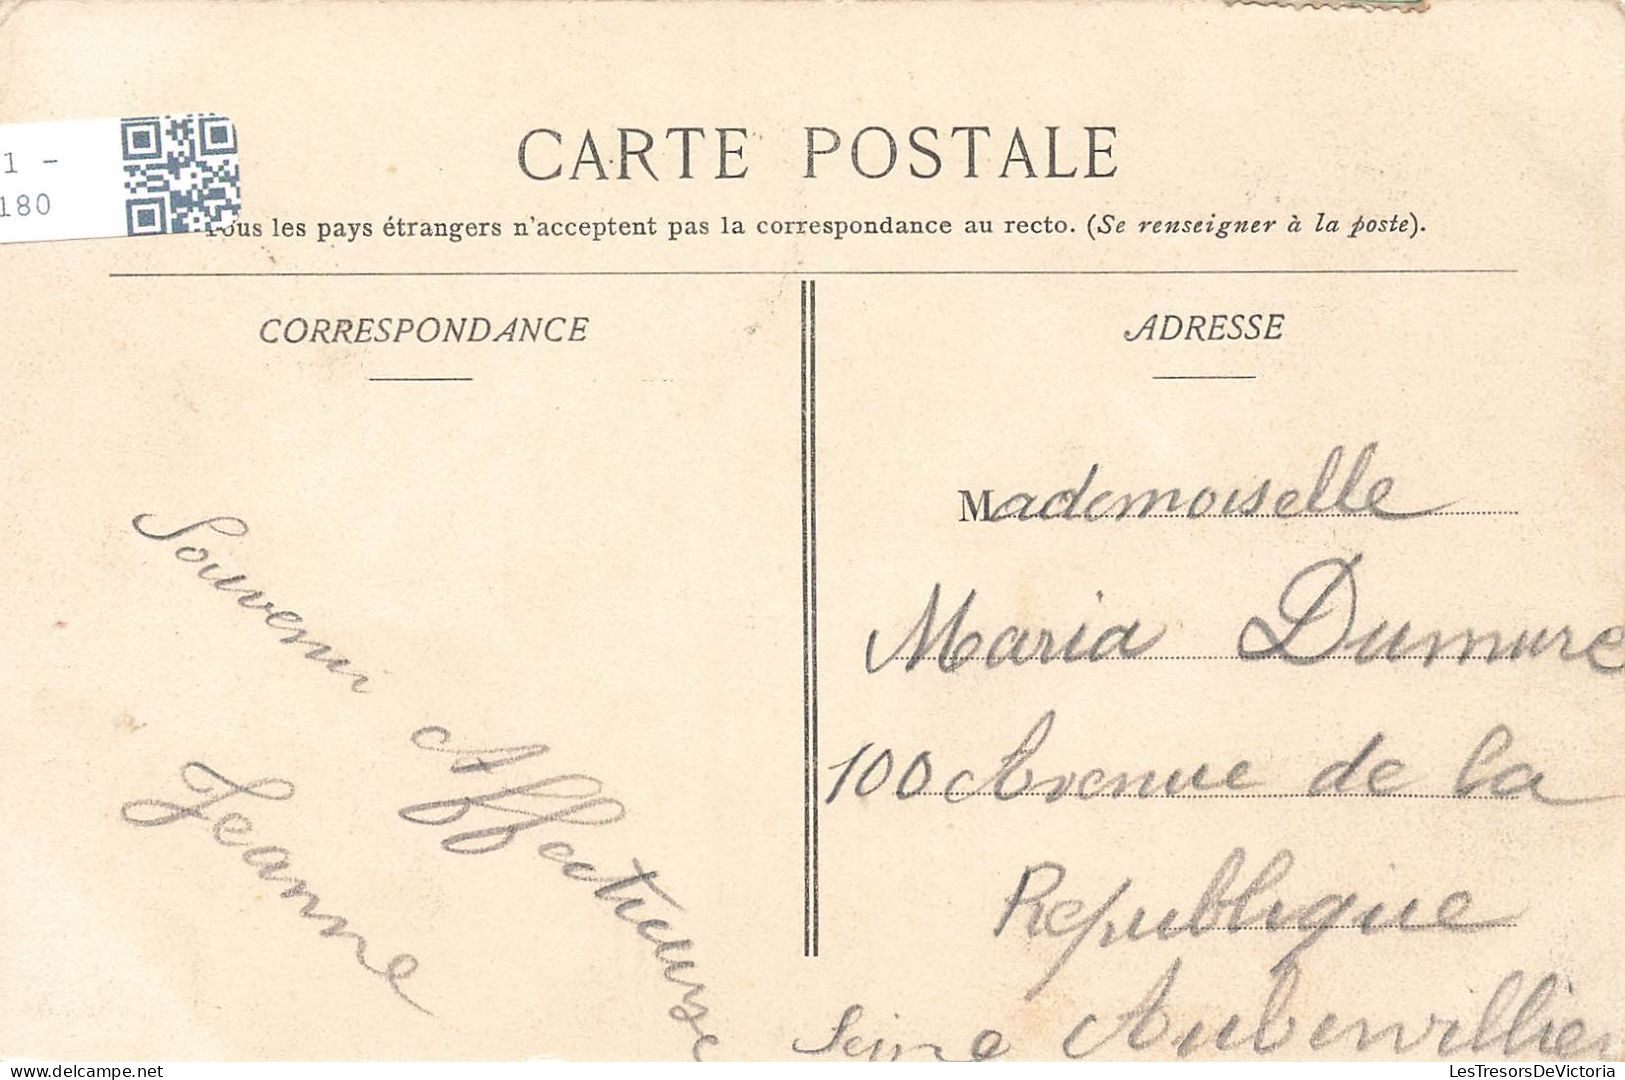 1 -
180
CARTE POSTALE
Tous les pays étrangers n'acceptent pas la correspondance au recto. (Se renseigner à la poste).
CORRESPONDANCE
Souvenir Affectueuse
Jeanne
ADRESSE
Mademoiselle
Maria Dumure
100 Avenue de la
Republique
Seine Aubervillier
LesTresorsDeVictoria